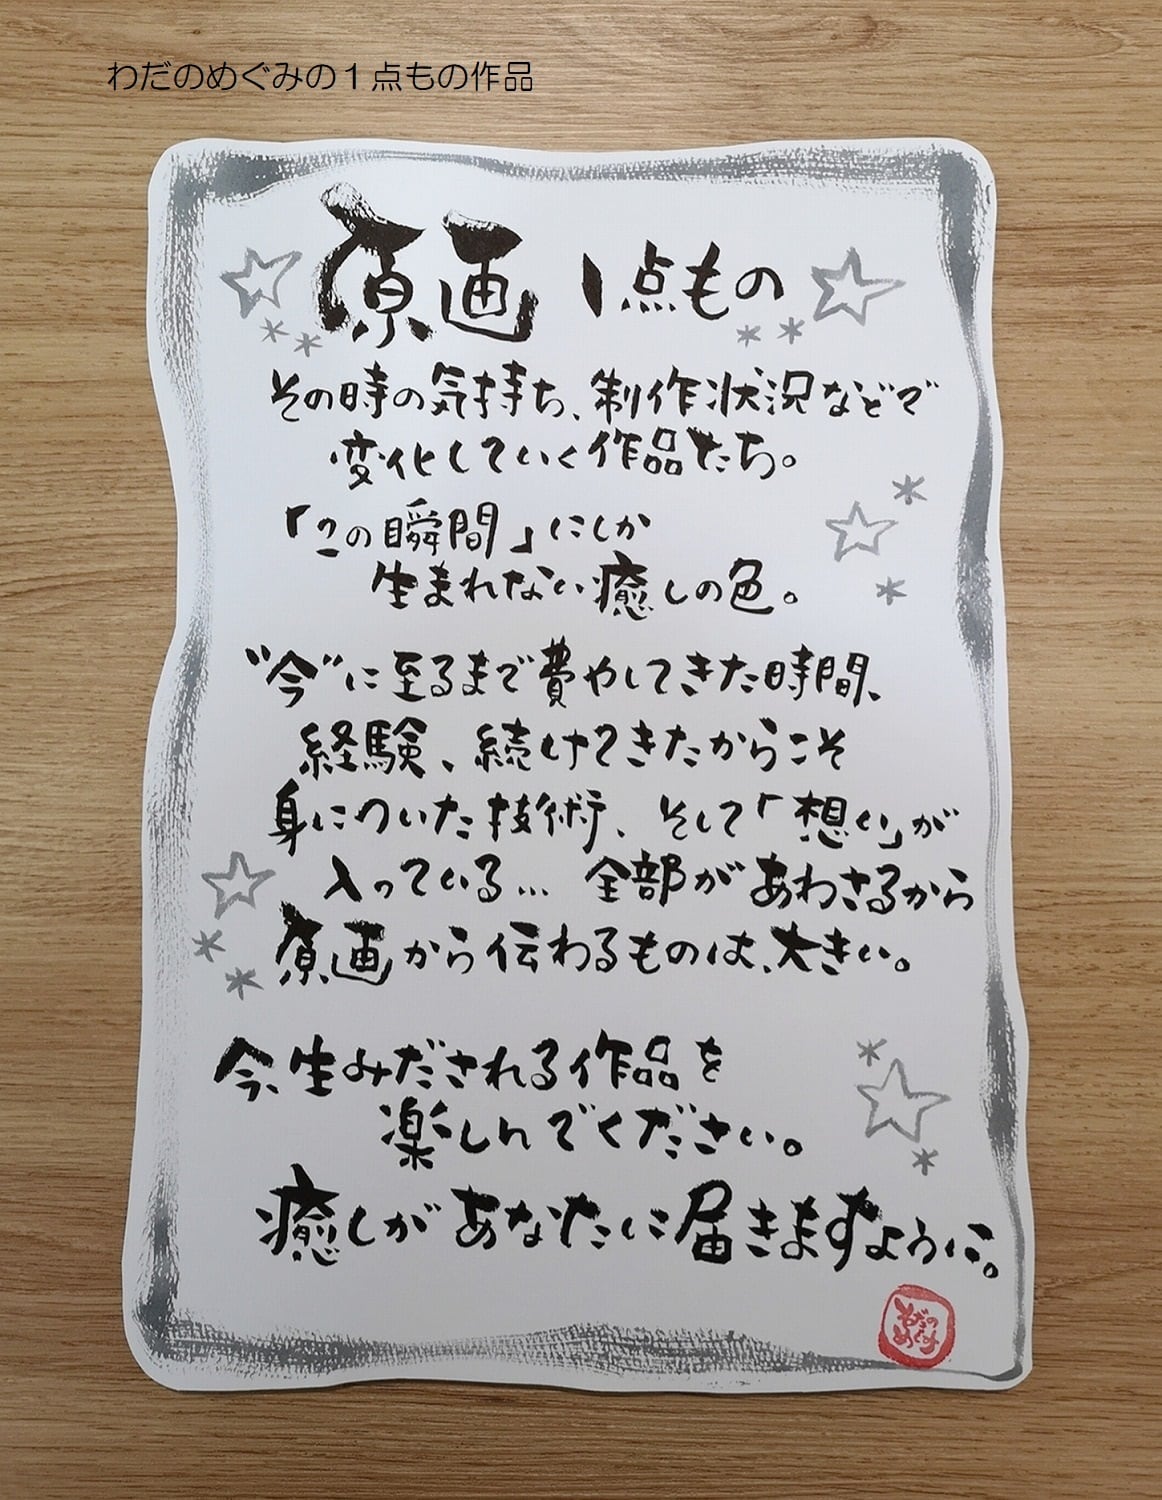 わだのめぐみの１点もの作品
原画 1点もの
その時の気持ち、制作状況などで
変化していく作品たち。
「この瞬間」にしか
生まれない癒しの色。
"今"に至るまで費やしてきた時間、
経験、続けてきたからこそ
身についた技術、そして「想い」が
入っている… 全部があわさるから
原画から伝わるものは、大きい。
今、生みだされる作品を
楽しんでください。
癒しがあなたに届きますように。
わだの
めぐみ